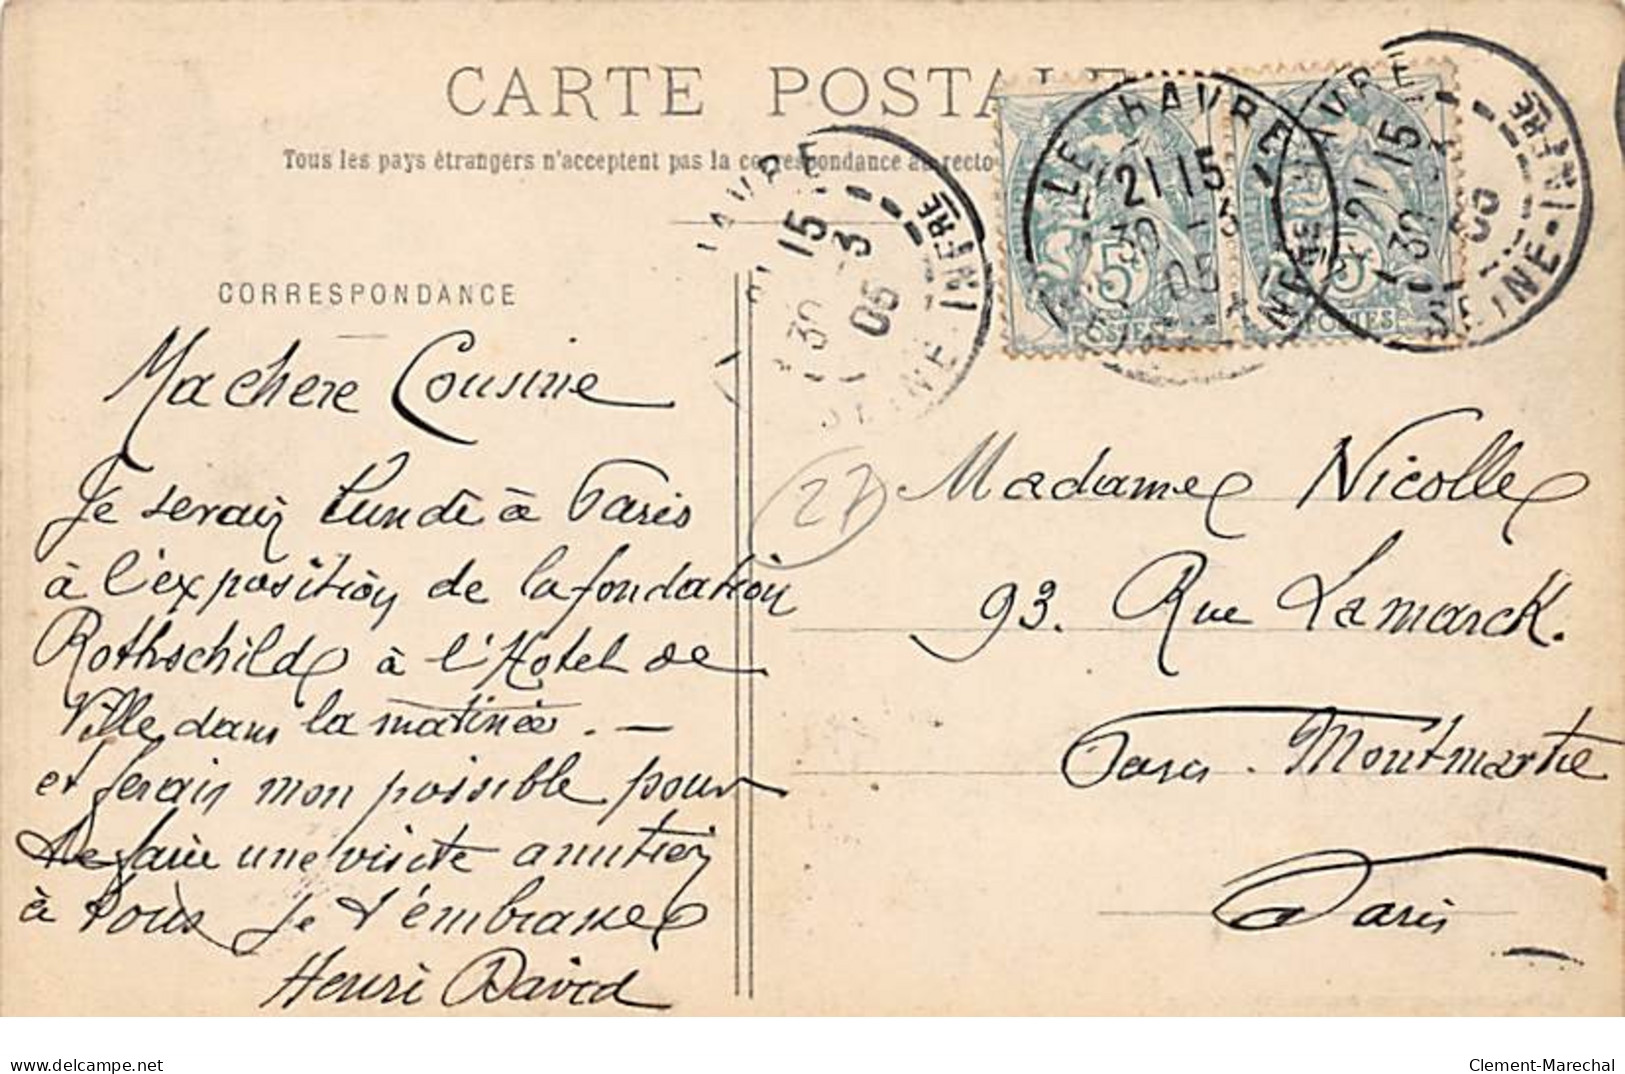 CARTE POSTALE
Tous les pays étrangers n'acceptent pas la correspondance au recto
CORRESPONDANCE
Ma chere Cousine
Je serais Lundi à Paris
à l'exposition de la fondation
Rothschild à l'Hotel de
Ville dans la matinée. —
et ferais mon possible pour
te faire une visite amitiés
à tous je t'embrasse
Henri David
27
LE HAVRE
21 15
30 - 3
05
POSTES
5
LE HAVRE
21 15
30 3
05
SEINE-INFRE
5
POSTES
HAVRE
15
30 3
05
SEINE-INFRE
Madame Nicolle
93. Rue Lamarck.
Paris. Montmartre
Paris
www.delcampe.net
Clement-Marechal